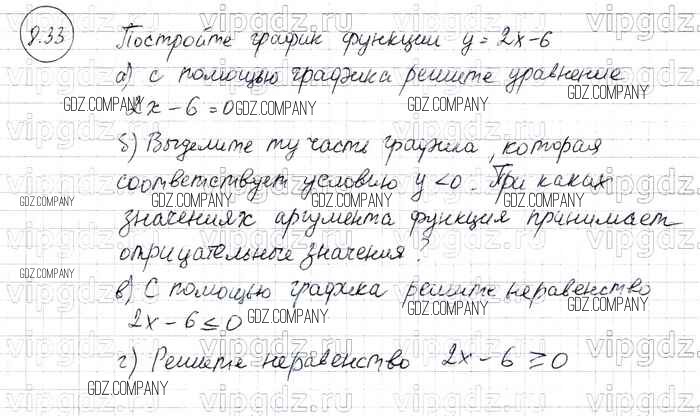 8.33
Постройте график функции y = 2x-6
а) с помощью графика решите уравнение
2x - 6 = 0
б) Выделите ту часть графика, которая
соответствует условию y < 0. При каких
значениях аргумента функция принимает
отрицательные значения?
в) С помощью графика решите неравенство
2x - 6 ≤ 0
г) Решите неравенство 2x - 6 ≥ 0
vipgdz.ru
GDZ.COMPANY